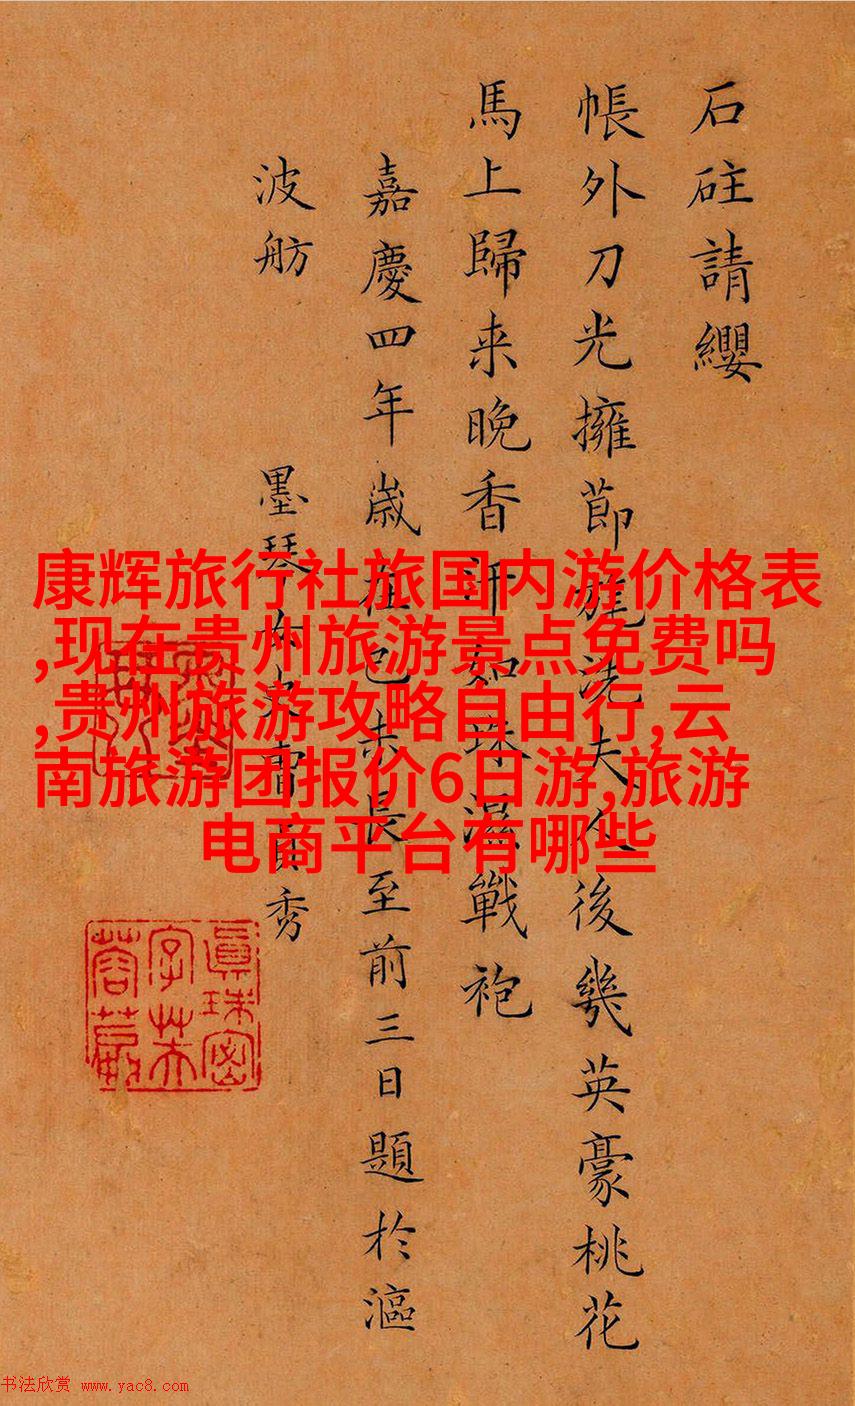 石砫請纓
帳外刀光擁節旄洗夫人後幾英豪桃花
馬上歸来晚香汗如珠濕戰袍
嘉慶四年歲在己未長至前三日題於漚
波舫 墨琴女史曹貞秀
眞珠密
字芙
蓉
康辉旅行社旅国内游价格表
,现在贵州旅游景点免费吗
,贵州旅游攻略自由行,云
南旅游团报价6日游,旅游
电商平台有哪些
书法欣赏 www.yac8.com